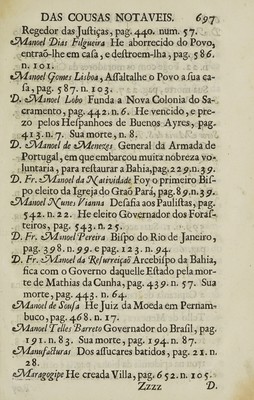 DAS COUSAS NOTAVEIS. 697
Regedor das Juſtiças, pag. 440. num. 57.
Manoel Dias Filgueira He aborrecido do Povo,
entraõ-lhe em caſa, e deſtroem-lha, pag. 586.
n. 101.
Manoel Gomes Lisboa, Aſſaltalhe o Povo a ſua ca-
ſa, pag. 587. n. 103.
D. Manoel Lobo Funda a Nova Colonia do Sa-
cramento, pag. 442. n. 6. He vencido, e pre-
zo pelos Heſpanhoes de Buenos Ayres, pag.
413. n. 7. Sua morte, n. 8.
D. Manoel de Menezes General da Armada de
Portugal, em que embarcou muita nobreza vo-
luntaria, para reſtaurar a Bahia, pag. 229. n. 39.
D. Fr. Manoel da Natividade Foy o primeiro Biſ-
po eleito da Igreja do Graõ Pará, pag. 89. n. 39.
Manoel Nunes Vianna Deſafia aos Pauliſtas, pag.
542. n. 22. He eleito Governador dos Foraſ-
teiros, pag. 543. n. 25.
D. Fr. Manoel Pereira Biſpo do Rio de Janeiro,
pag. 398. n. 99. e pag. 123. n. 94.
D. Fr. Manoel da Reſurreiçaõ Arcebiſpo da Bahia,
fica com o Governo daquelle Eſtado pela mor-
te de Mathias da Cunha, pag. 439. n. 57. Sua
morte, pag. 443. n. 64.
Manoel de Souſa He Juiz da Moeda em Pernam-
buco, pag. 468. n. 17.
Manoel Telles Barreto Governador do Braſil, pag.
191. n. 83. Sua morte, pag. 194. n. 87.
Manufacturas Dos aſſucares batidos, pag. 21. n.
28.
Maragogipe He creada Villa, pag. 652. n. 105.
Zzzz D.